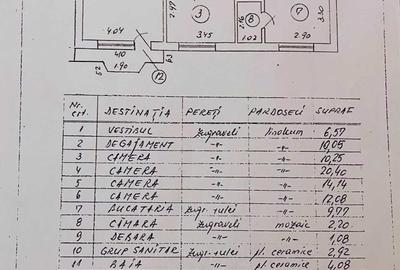 2.97
3
2.16
8
7
3.30
4.04
3.45
1.02
2.90
410
1.90
63
12
Nr. crt. DESTINAȚIA PEREȚI PARDOSELI SUPRAF
1 VESTIBUL zugraveli linoleum 6,57
2 DEGAJAMENT -"- -"- 10,05
3 CAMERA -"- -"- 10,25
4 CAMERA -"- -"- 20,40
5 CAMERA -"- -"- 14,14
6 CAMERA -"- -"- 12,08
7 BUCATARIA zugr. ulei -"- 9,77
8 CĂMARA zugraveli mozaic 2,20
9 DEBARA -"- -"- 1,08
10 GRUP SANITAR zugr. ulei pl. ceramice 2,92
11 BAIA -"- pl. ceramice 4,08